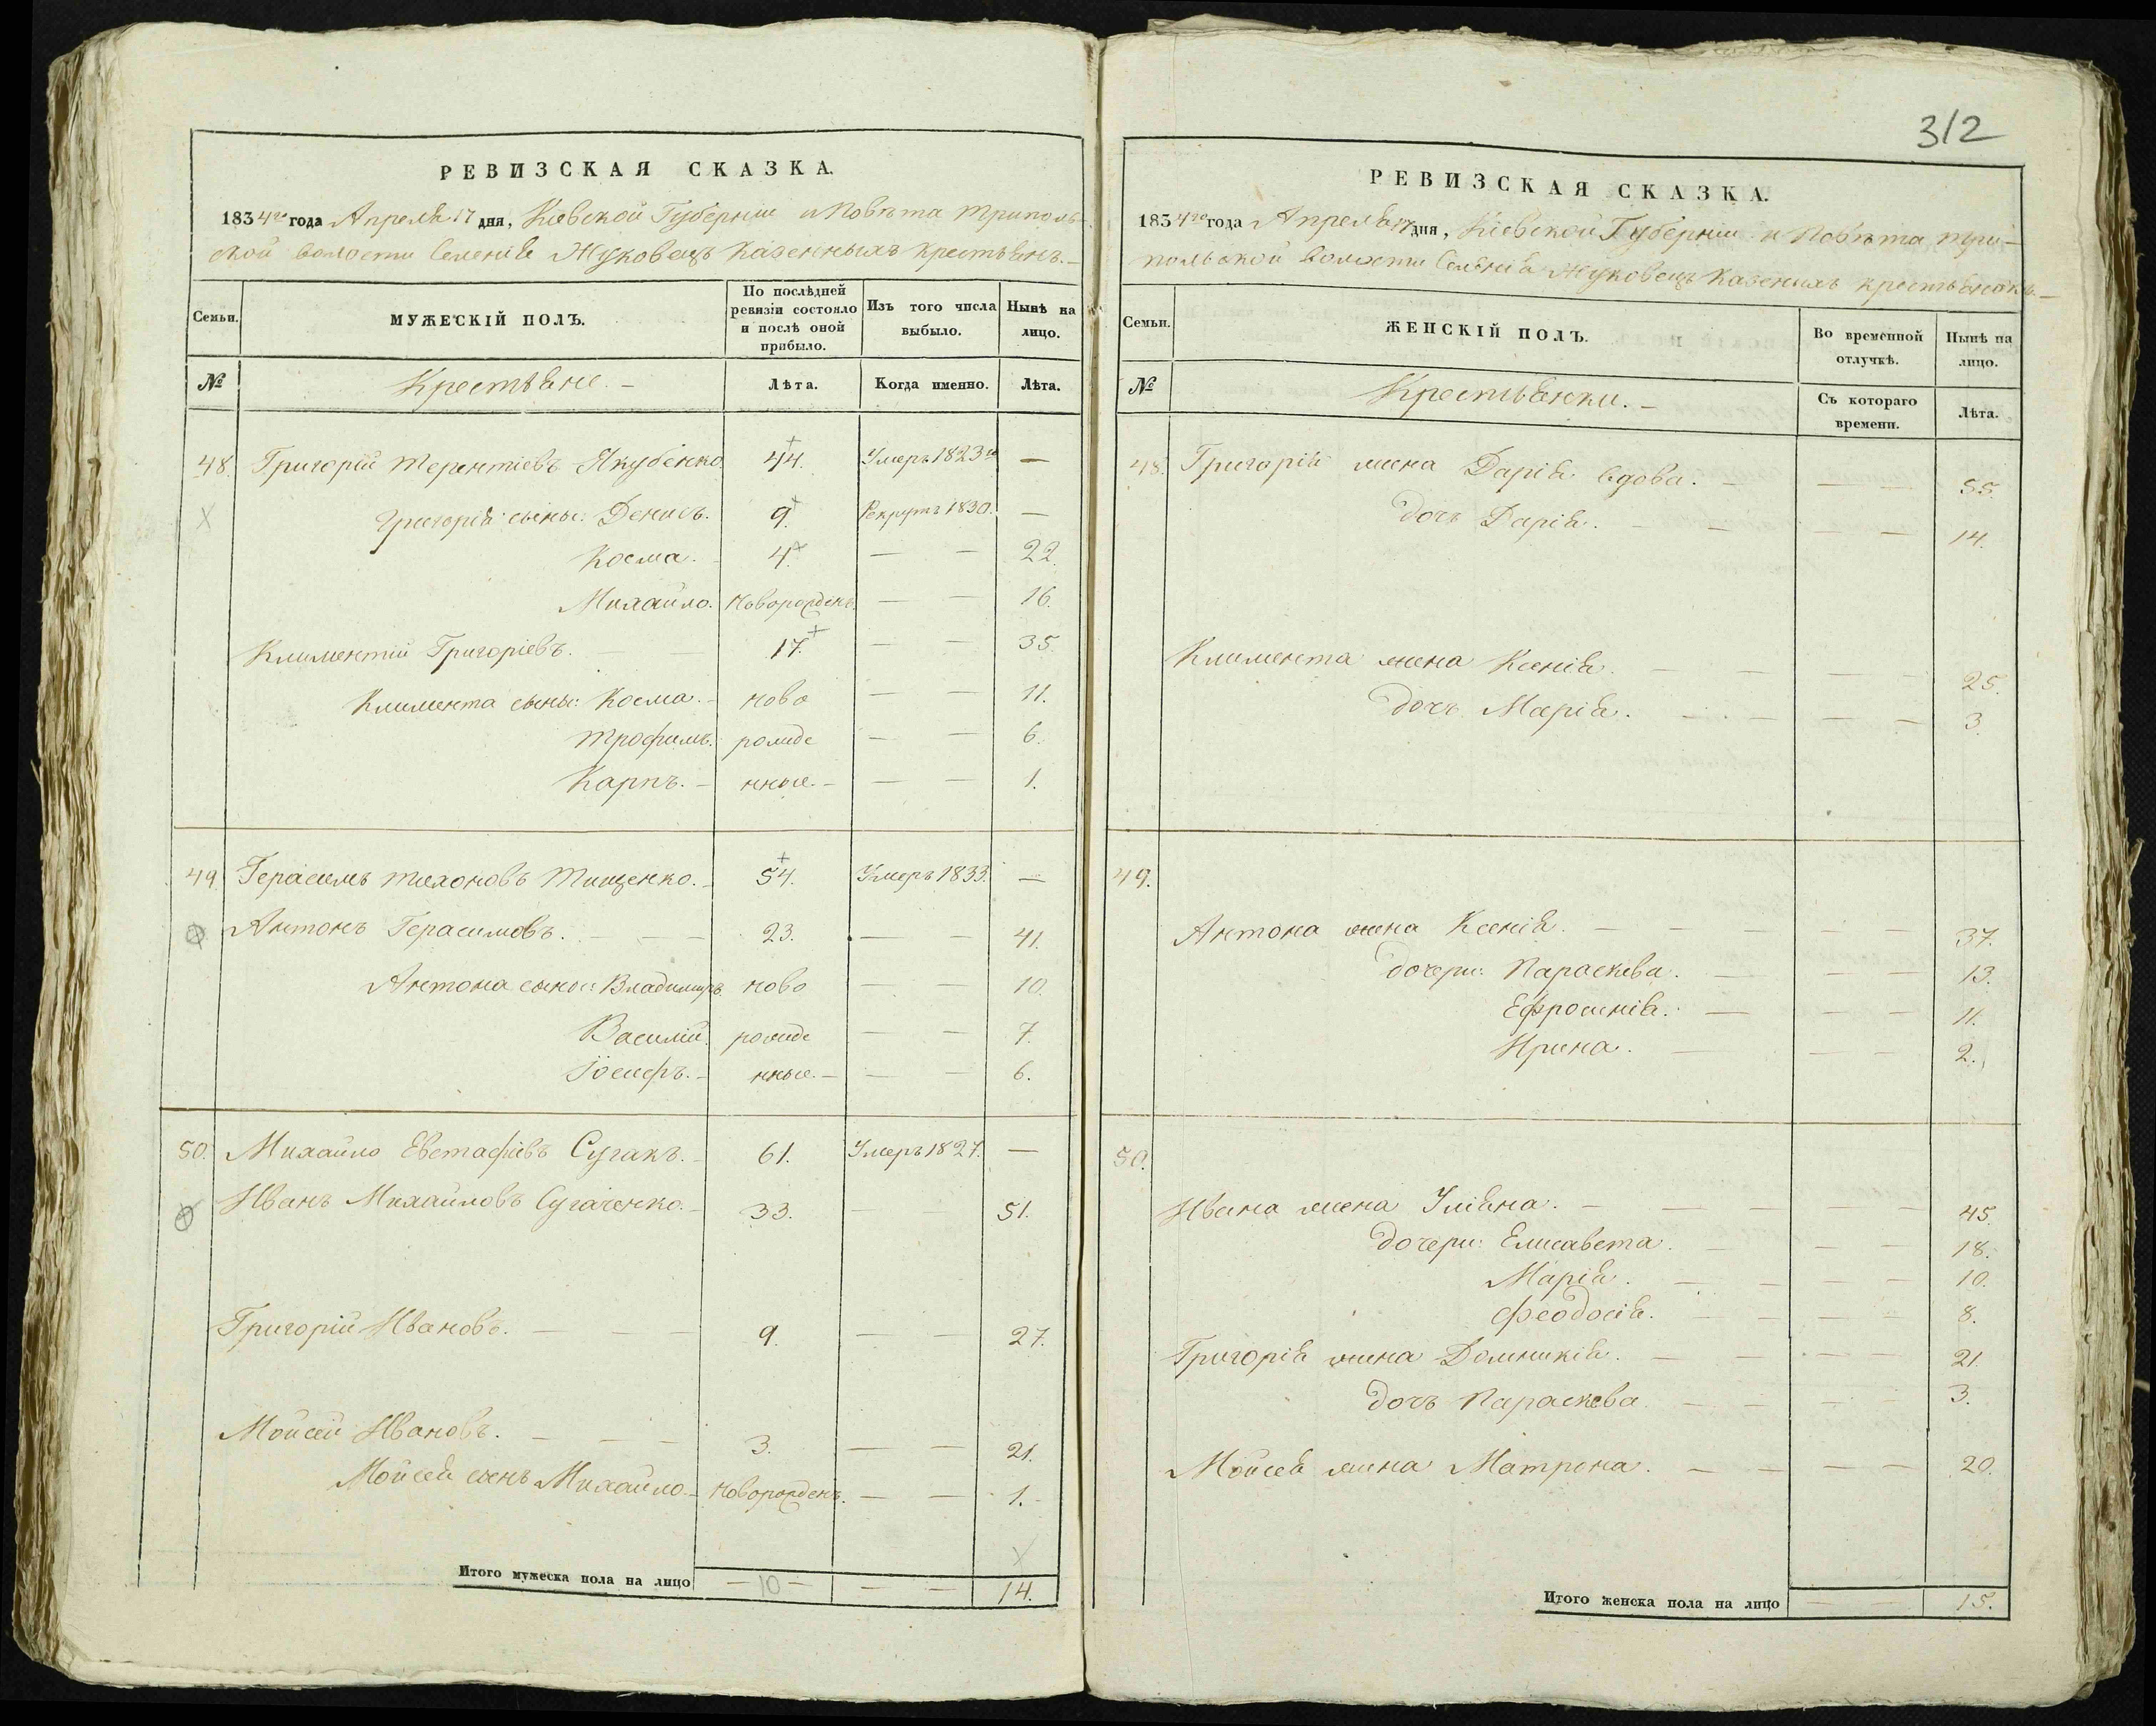 312
РЕВИЗСКАЯ СКАЗКА.
1834го года Апреля 17 дня, Кіевской Губерніи и Повѣта Триполь-
ской волости Селенія Жуковецъ Казенныхъ крестьянъ.
Семьи.
МУЖЕСКІЙ ПОЛЪ.
По послѣдней ревизіи состояло и послѣ оной прибыло.
Изъ того числа выбыло.
Нынѣ на лицо.
№ Крестьяне. Лѣта. Когда именно. Лѣта.
48. Григорій Терентіевъ Якубенко 44. Умеръ 1823го —
Григорія сыны: Денисъ. 9. Рекрутъ 1830. —
Косма. 4. — — 22.
Михайло. Новорожденъ. — — 16.
Климентій Григоріевъ. 17. — — 35.
Климента сыны: Косма. ново — — 11.
Трофимъ. рожде — — 6.
Карпъ. нные. — — 1.
49. Герасимъ Тихоновъ Тищенко. 54. Умеръ 1833. —
Антонъ Герасимовъ. 23. — — 41.
Антона сыны: Владимиръ ново — — 10.
Василій. рожде — — 7.
Іосифъ. нные. — — 6.
50. Михайло Евстафіевъ Сугакъ. 61. Умеръ 1827. —
Иванъ Михайловъ Сугаченко. 33. — — 51.
Григорій Ивановъ. 9. — — 27.
Мойсей Ивановъ. 3. — — 21.
Мойсея сынъ Михайло. Новорожденъ. — — 1.
Итого мужеска пола на лицо — 10 — — — 14.
РЕВИЗСКАЯ СКАЗКА.
1834го года Апреля 17 дня, Кіевской Губерніи и Повѣта Три-
польской волости Селенія Жуковецъ Казеныхъ крестьянокъ.
Семьи.
ЖЕНСКІЙ ПОЛЪ.
Во временной отлучкѣ.
Нынѣ на лицо.
№ Крестьянки. Съ котораго времени. Лѣта.
48. Григорія жена Дарія вдова. — — 55.
дочь Дарія. — — 14.
Климента жена Ксенія. — — 25.
дочь Марія. — — 3.
49.
Антона жена Ксенія. — — 37.
дочери: Параскева. — — 13.
Ефросинія. — — 11.
Ирина. — — 2.
50.
Ивана жена Уліяна. — — 45.
дочери: Елисавета. — — 18.
Марія. — — 10.
Феодосія. — — 8.
Григорія жена Домникія. — — 21.
дочь Параскева — — 3.
Мойсея жена Матрона. — — 20.
Итого женска пола на лицо — — 15.